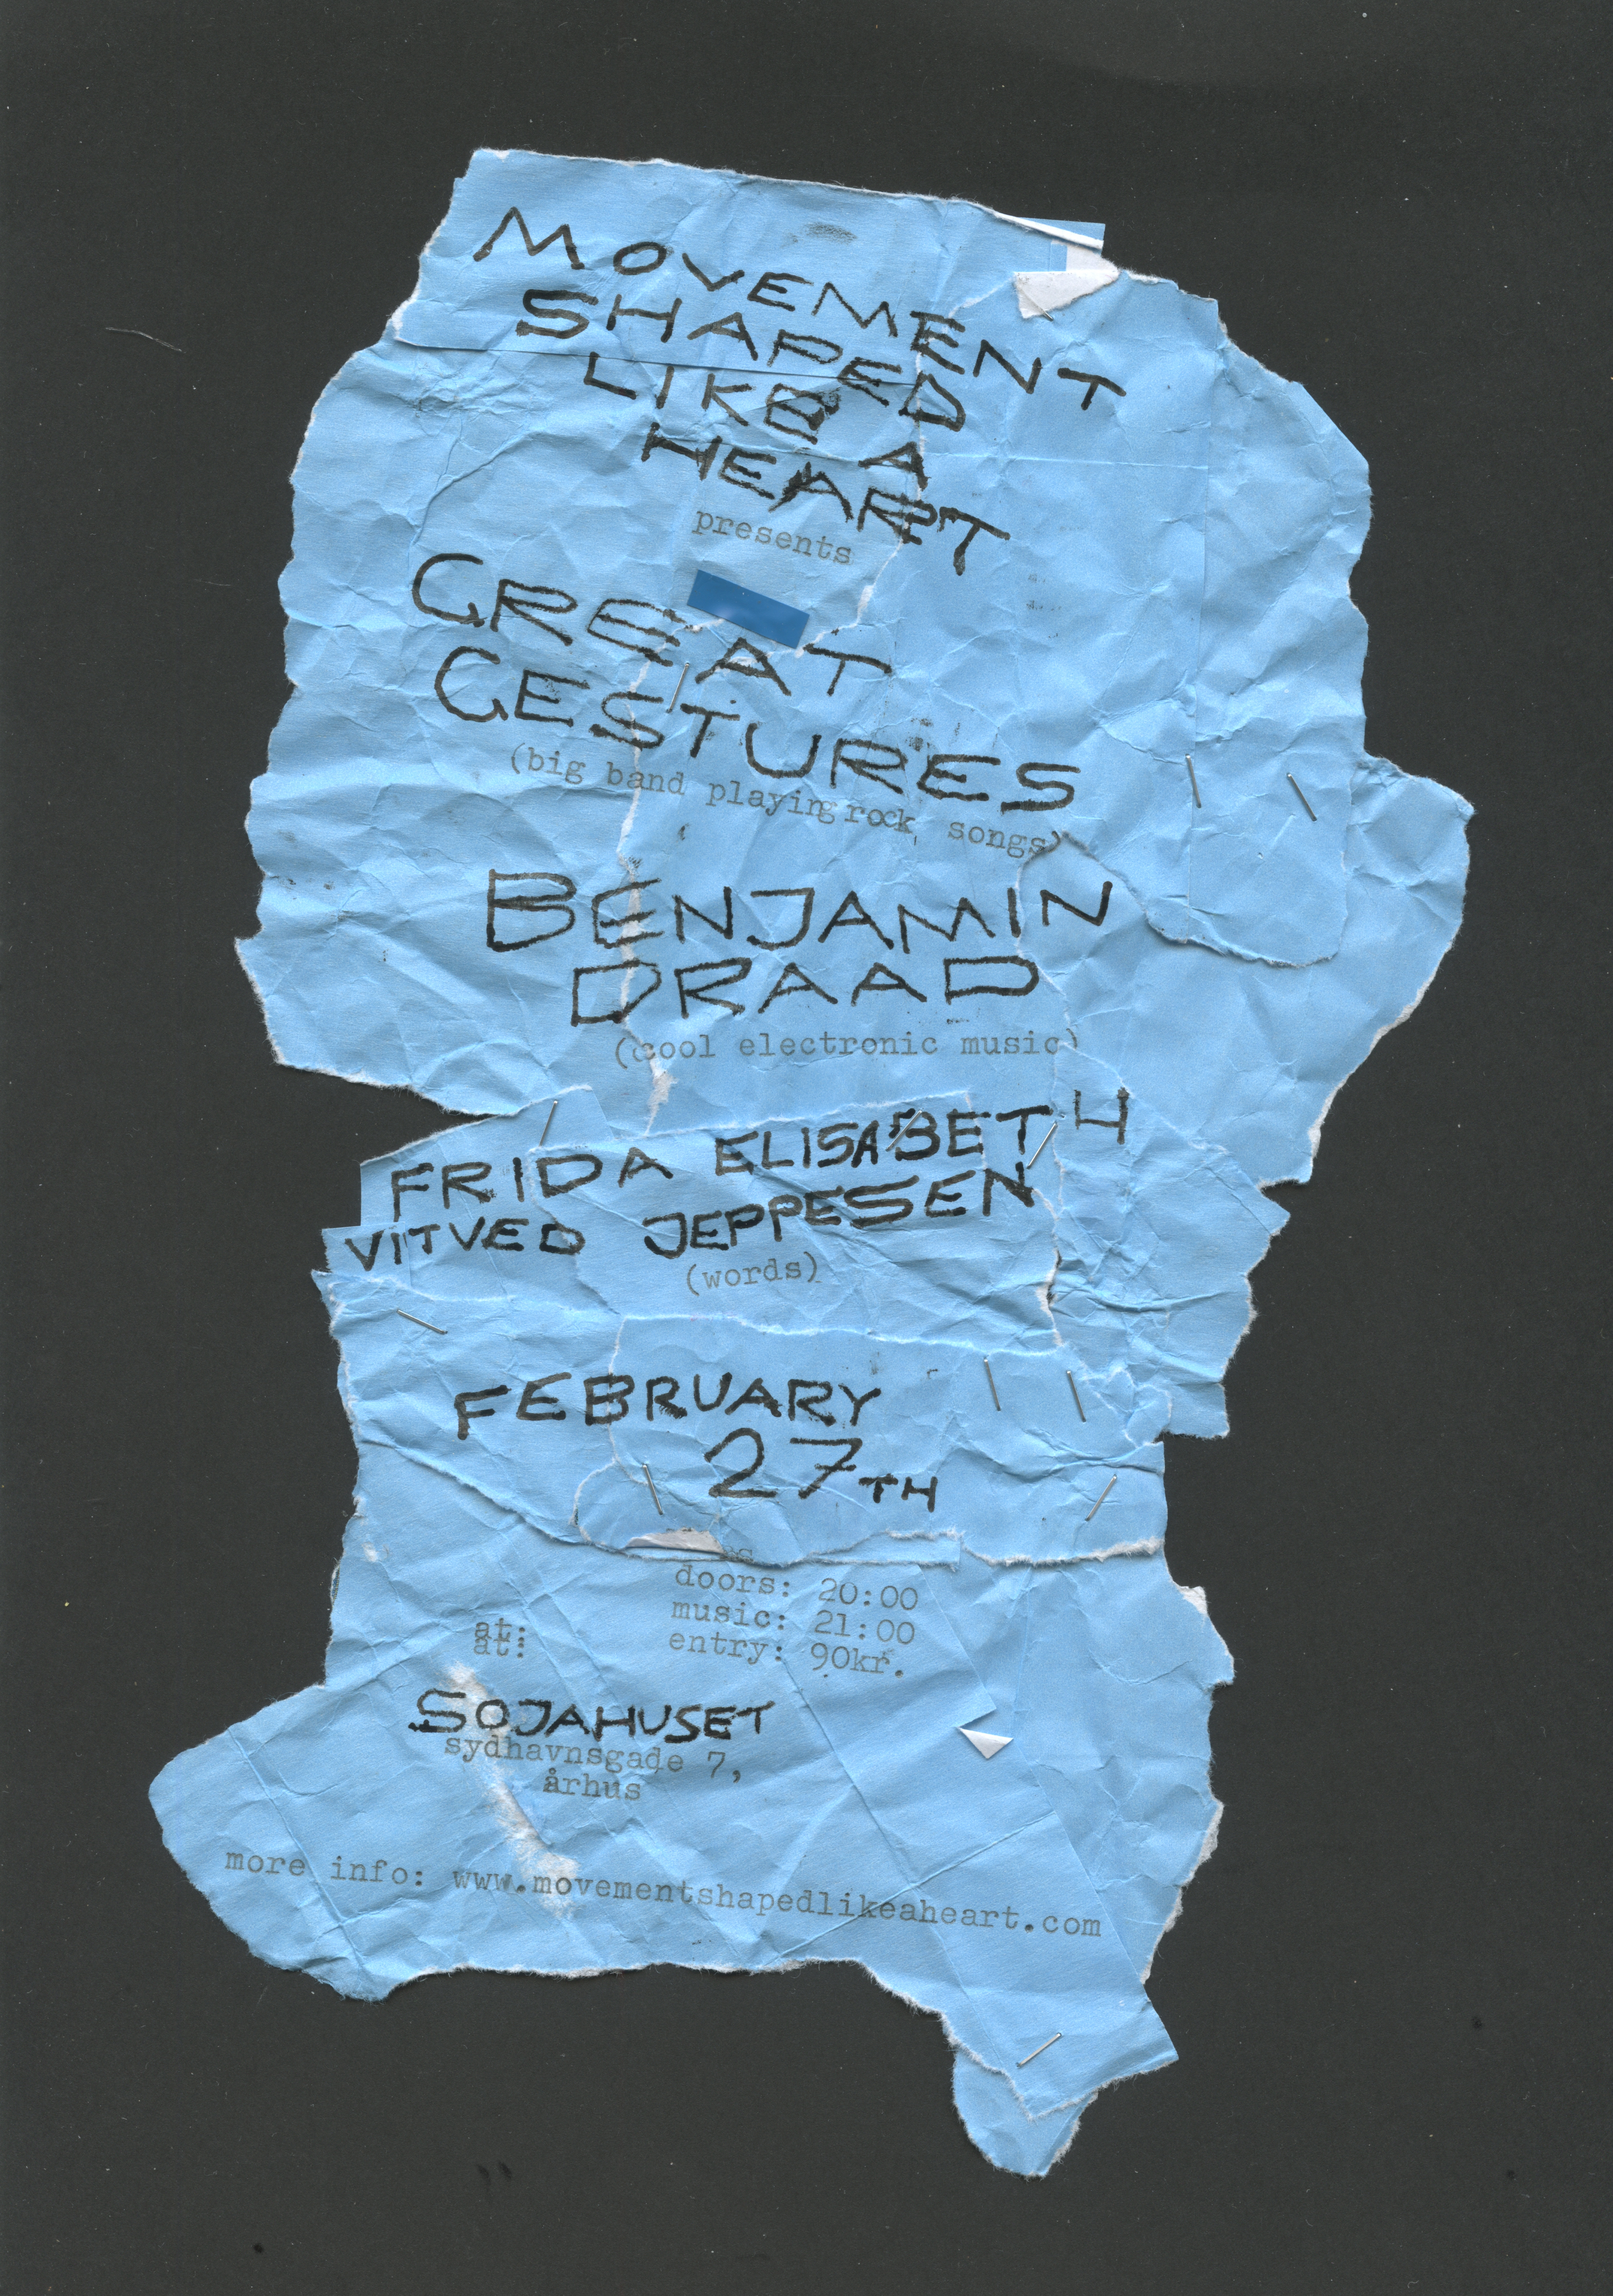 MOVEMENT
SHAPED
LIKE A
HEART
presents
GREAT
GESTURES
(big band playing rock songs)
BENJAMIN
DRAAD
(cool electronic music)
FRIDA ELISABETH
VITVED JEPPESEN
(words)
FEBRUARY
27TH
doors: 20:00
music: 21:00
at:
at:
entry: 90kr.
SOJAHUSET
sydhavnsgade 7,
århus
more info: www.movementshapedlikeaheart.com